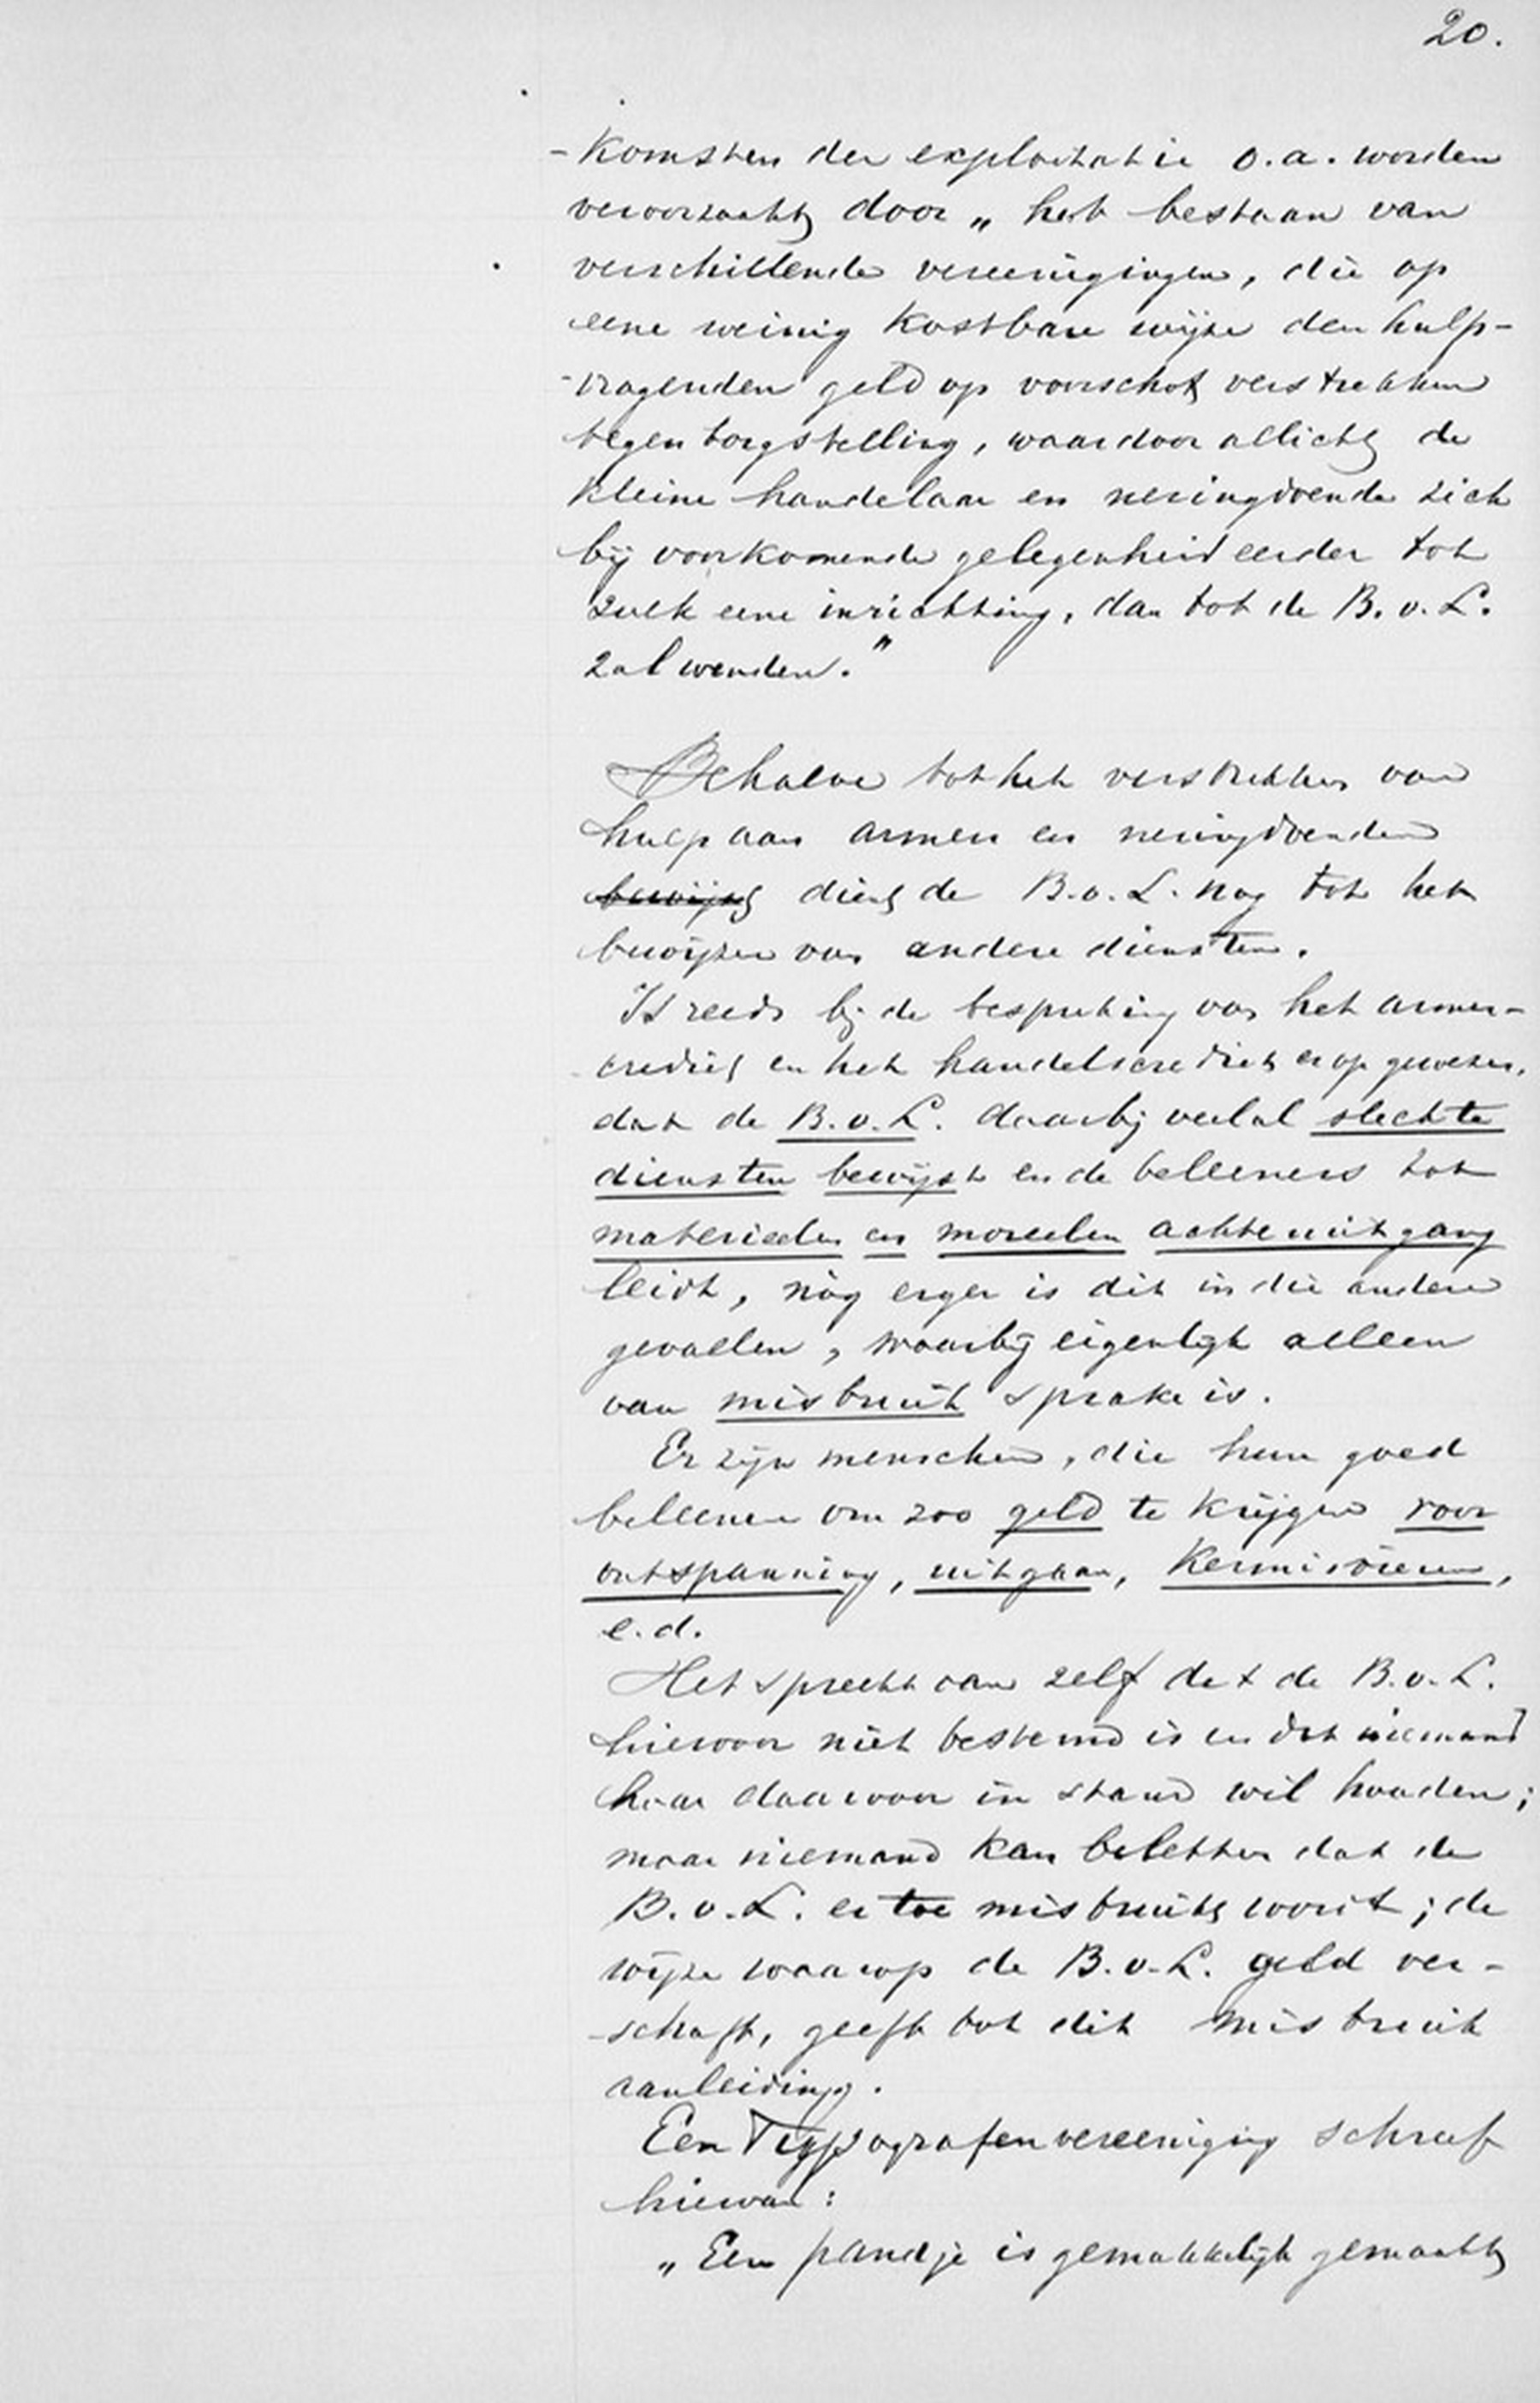 20.
-komsten der exploitatie o.a. worden
veroorzaakt door „ het bestaan van
verschillende vereenigingen, die op
eene weinig kostbare wijze den hulp-
-vragenden geld op voorschot verstrekken
tegen borgstelling, waardoor allicht de
kleine handelaar en neringdoende zich
bij voorkomende gelegenheid eerder tot
zulk eene inrichting, dan tot de B. v. L.
zal wenden."
Behalve tot het verstrekken van
hulp aan armen en neringdoenden
bewijst dient de B. v. L. nog tot het
bewijzen van andere diensten.
Is reeds bij de bespreking van het armen-
-crediet en het handelscrediet er op gewezen,
dat de B. v. L. daarbij veelal slechte
diensten bewijst en de beleeners tot
materieelen en moreelen achteruitgang
leidt, nòg erger is dit in die andere
gevallen, waarbij eigenlijk alleen
van misbruik sprake is.
Er zijn menschen, die hun goed
beleenen om zoo geld te krijgen voor
ontspanning, uitgaan, kermisvieren,
e.d.
Het spreekt van zelf dat de B. v. L.
hiervoor niet bestemd is en dat niemand
haar daarvoor in stand wil houden;
maar niemand kan beletten dat de
B. v. L. er toe misbruikt wordt; de
wijze waarop de B. v. L. geld ver-
-schaft, geeft tot dit misbruik
aanleiding.
Een Typografenvereeniging schreef
hiervan:
„ Een pandje is gemakkelijk gemaakt